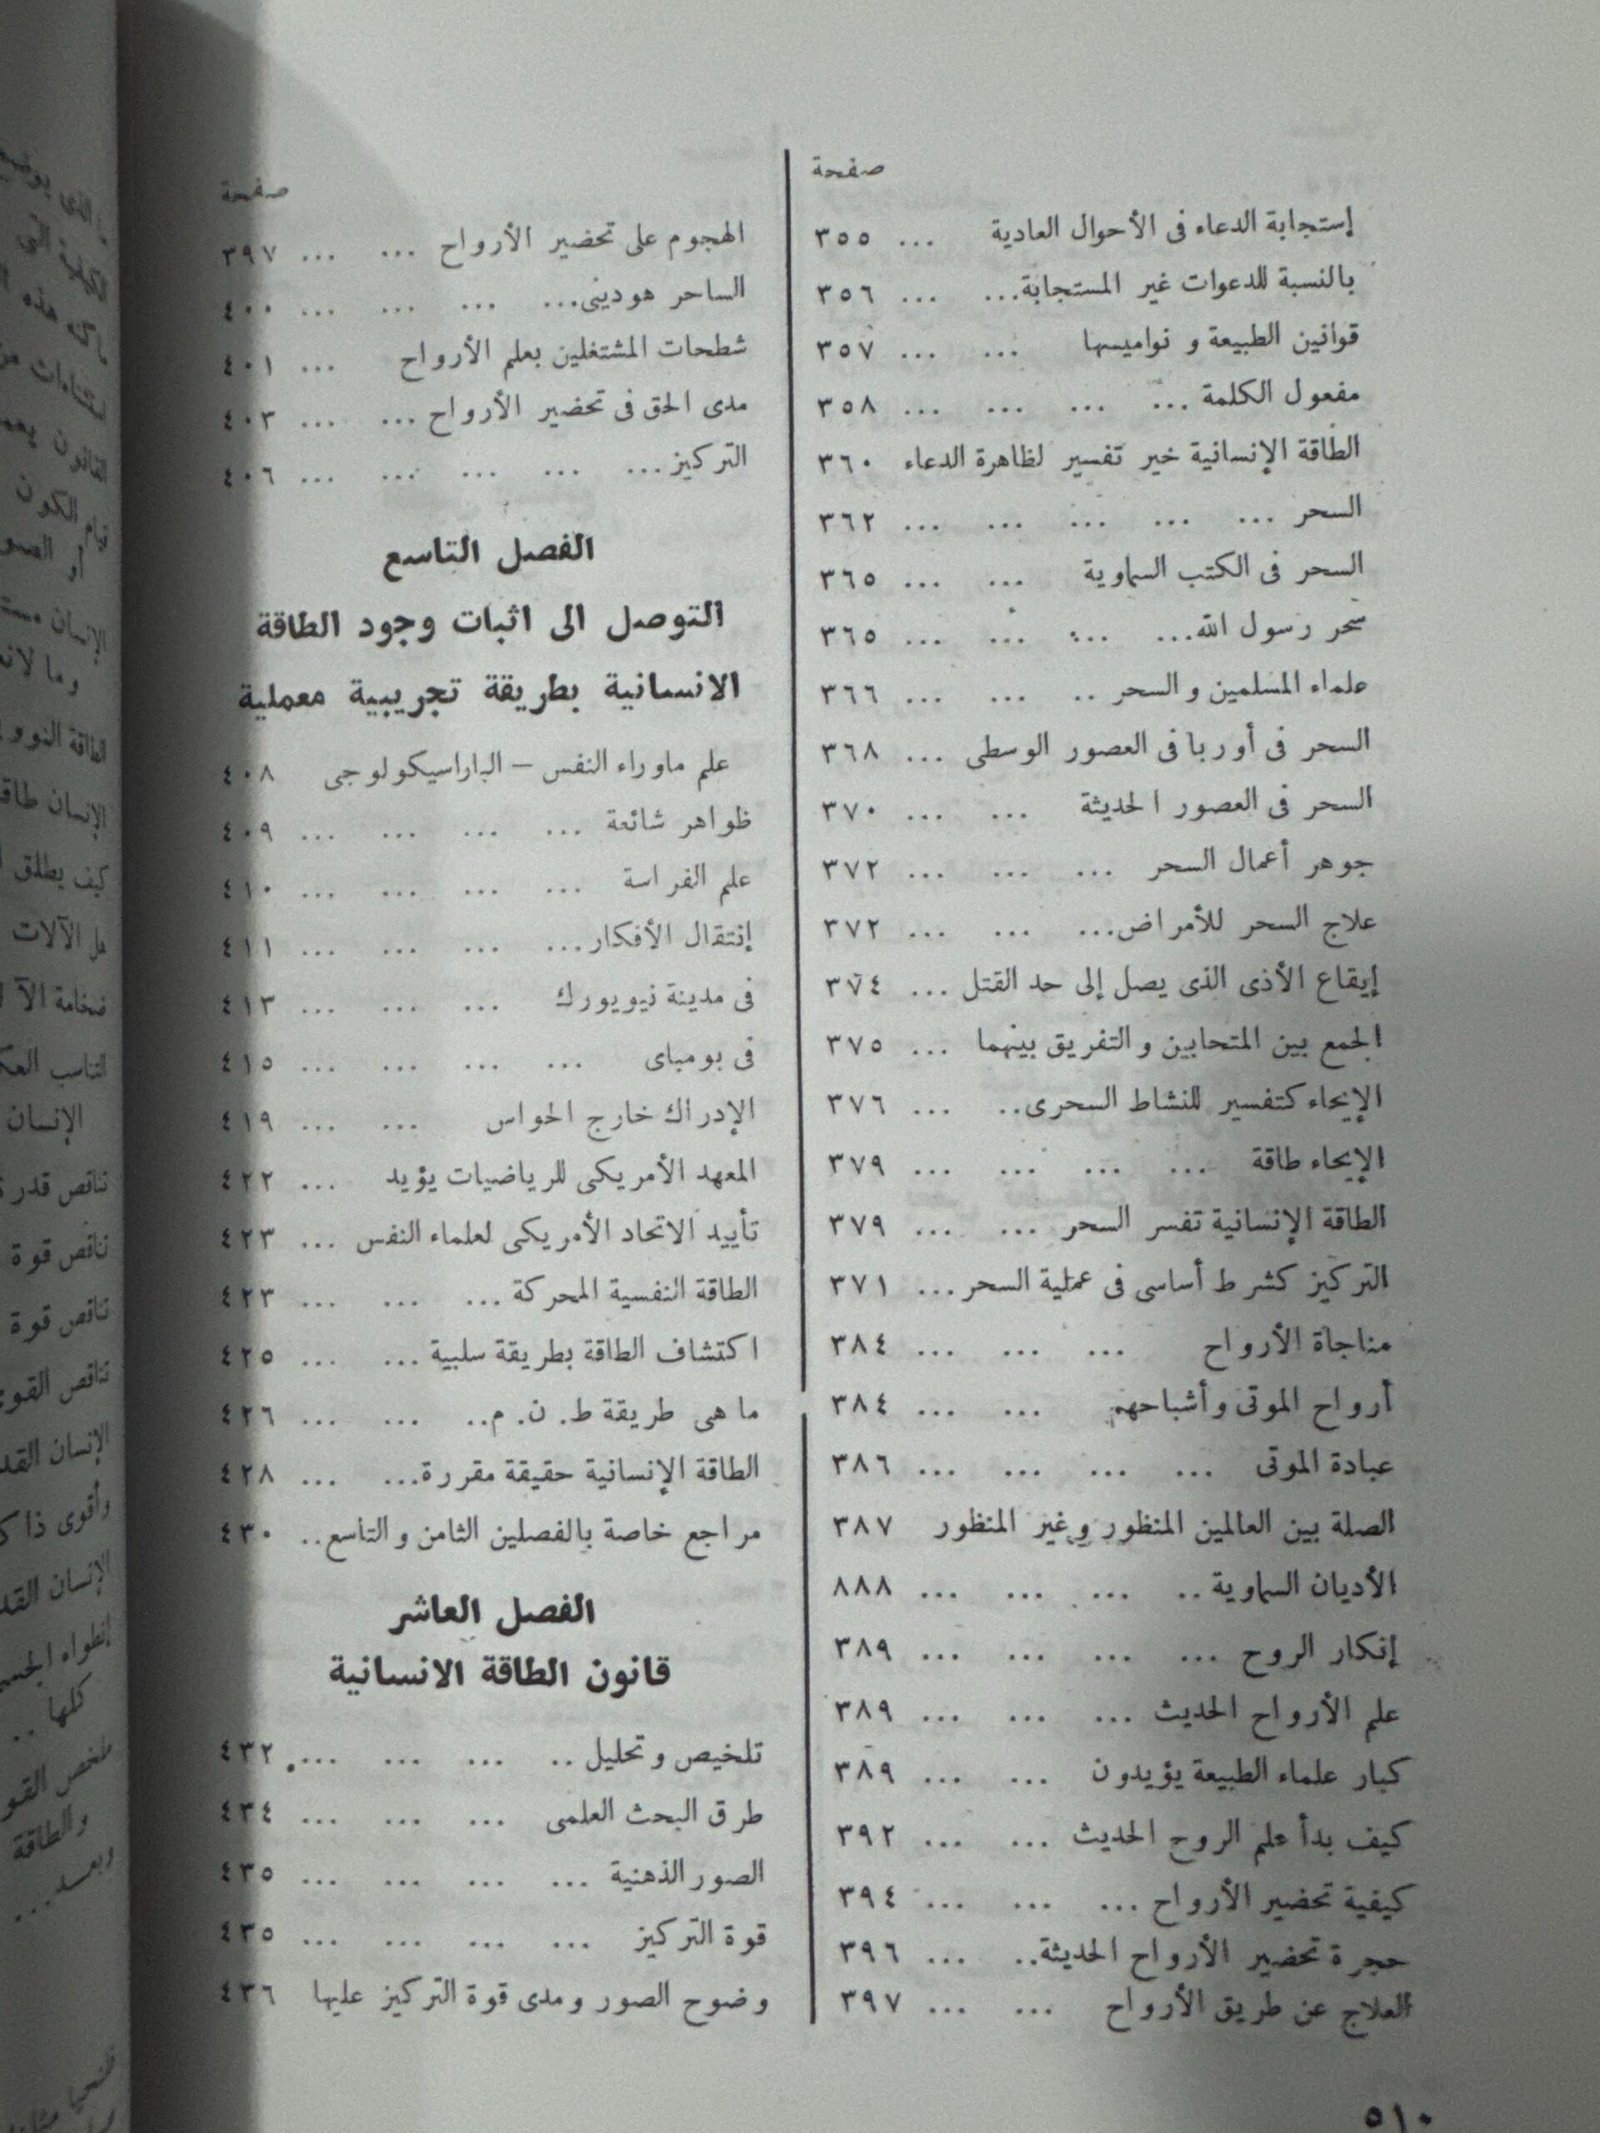 صفحة
إستجابة الدعاء فى الأحوال العادية ... ٣٥٥
بالنسبة للدعوات غير المستجابة... ... ... ٣٥٦
قوانين الطبيعة و نواميسها ... ... ... ٣٥٧
مفعول الكلمة ... ... ... ... ٣٥٨
الطاقة الإنسانية خير تفسير لظاهرة الدعاء ٣٦٠
السحر ... ... ... ... ... ٣٦٢
السحر فى الكتب السماوية ... ... ... ٣٦٥
سحر رسول الله... ... ... ... ٣٦٥
علماء المسلمين والسحر .. ... ... ... ٣٦٦
السحر فى أوربا فى العصور الوسطى ... ٣٦٨
السحر فى العصور الحديثة ... ... ... ٣٧٠
جوهر أعمال السحر ... ... ... ... ٣٧٢
علاج السحر للأمراض... ... ... ... ٣٧٢
إيقاع الأذى الذى يصل إلى حد القتل ... ٣٧٤
الجمع بين المتحابين والتفريق بينهما ... ٣٧٥
الإيحاء كتفسير للنشاط السحرى.. ... ... ٣٧٦
الإيحاء طاقة ... ... ... ... ٣٧٩
الطاقة الإنسانية تفسر السحر ... ... ... ٣٧٩
التركيز كشرط أساسى فى عملية السحر... ... ٣٧١
مناجاة الأرواح ... ... ... ... ٣٨٤
أرواح الموتى وأشباحهم ... ... ... ٣٨٤
عبادة الموتى ... ... ... ... ... ٣٨٦
الصلة بين العالمين المنظور وغير المنظور ٣٨٧
الأديان السماوية .. ... ... ... ... ٨٨٨
إنكار الروح ... ... ... ... ... ٣٨٩
علم الأرواح الحديث ... ... ... ... ٣٨٩
كبار علماء الطبيعة يؤيدون ... ... ... ٣٨٩
كيف بدأ علم الروح الحديث ... ... ... ٣٩٢
كيفية تحضير الأرواح ... ... ... ... ٣٩٤
حجرة تحضير الأرواح الحديثة.. ... ... ٣٩٦
العلاج عن طريق الأرواح ... ... ... ٣٩٧
صفحة
الهجوم على تحضير الأرواح ... ... ... ٣٩٧
الساحر هودينى... ... ... ... ٤٠٠
شطحات المشتغلين بعلم الأرواح ... ٤٠١
مدى الحق فى تحضير الأرواح ... ... ... ٤٠٣
التركيز ... ... ... ... ... ٤٠٦
الفصل التاسع
التوصل الى اثبات وجود الطاقة
الانسانية بطريقة تجريبية معملية
علم ماوراء النفس – الباراسيكولوجى ٤٠٨
ظواهر شائعة ... ... ... ... ٤٠٩
علم الفراسة ... ... ... ... ٤١٠
إنتقال الأفكار... ... ... ... ٤١١
فى مدينة نيويورك ... ... ... ٤١٣
فى بومباى ... ... ... ... ٤١٥
الإدراك خارج الحواس ... ... ... ٤١٩
المعهد الأمريكى للرياضيات يؤيد ... ٤٢٢
تأييد الاتحاد الأمريكى لعلماء النفس ... ٤٢٣
الطاقة النفسية المحركة ... ... ... ... ٤٢٣
اكتشاف الطاقة بطريقة سلبية ... ... ... ٤٢٥
ما هى طريقة ط. ن. م.. ... ... ... ٤٢٦
الطاقة الإنسانية حقيقة مقررة... ... ... ٤٢٨
مراجع خاصة بالفصلين الثامن والتاسع.. ٤٣٠
الفصل العاشر
قانون الطاقة الانسانية
تلخيص وتحليل .. ... ... ... ٤٣٢
طرق البحث العلمى ... ... ... ٤٣٤
الصور الذهنية ... ... ... ... ٤٣٥
قوة التركيز ... ... ... ... ٤٣٥
وضوح الصور ومدى قوة التركيز عليها ٤٣٦
٥١٠
القانون
الكون
أو
الإنسان
الطاقة
الإنسان
كيف يطلق
هل الآلات
ضخامة
الإنسان
تناقص
تناقص قوة
تناقص قوة
تناقص
الإنسان
وأقوى
الإنسان
كلها ..
والطاقة